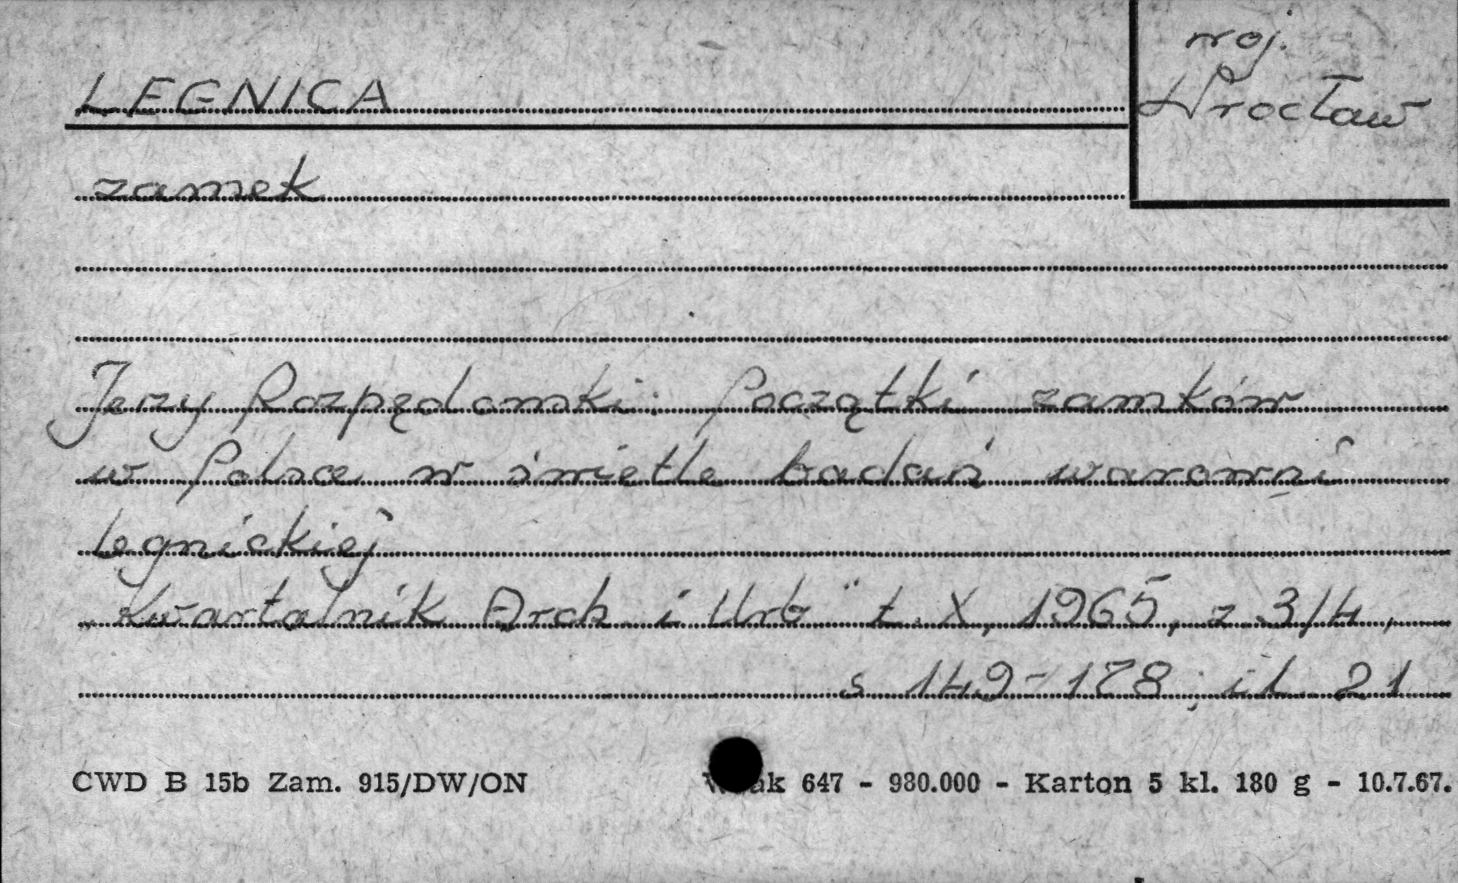 LEGNICA
woj.
Wrocław
zamek
Jerzy Rozpędowski: Początki zamków
w Polsce w świetle badań warowni
legnickiej
„Kwartalnik Arch. i Urb" t. X, 1965, z 3/4,
s 149-178; il. 21
CWD B 15b Zam. 915/DW/ON
647 - 980.000 - Karton 5 kl. 180 g - 10.7.67.